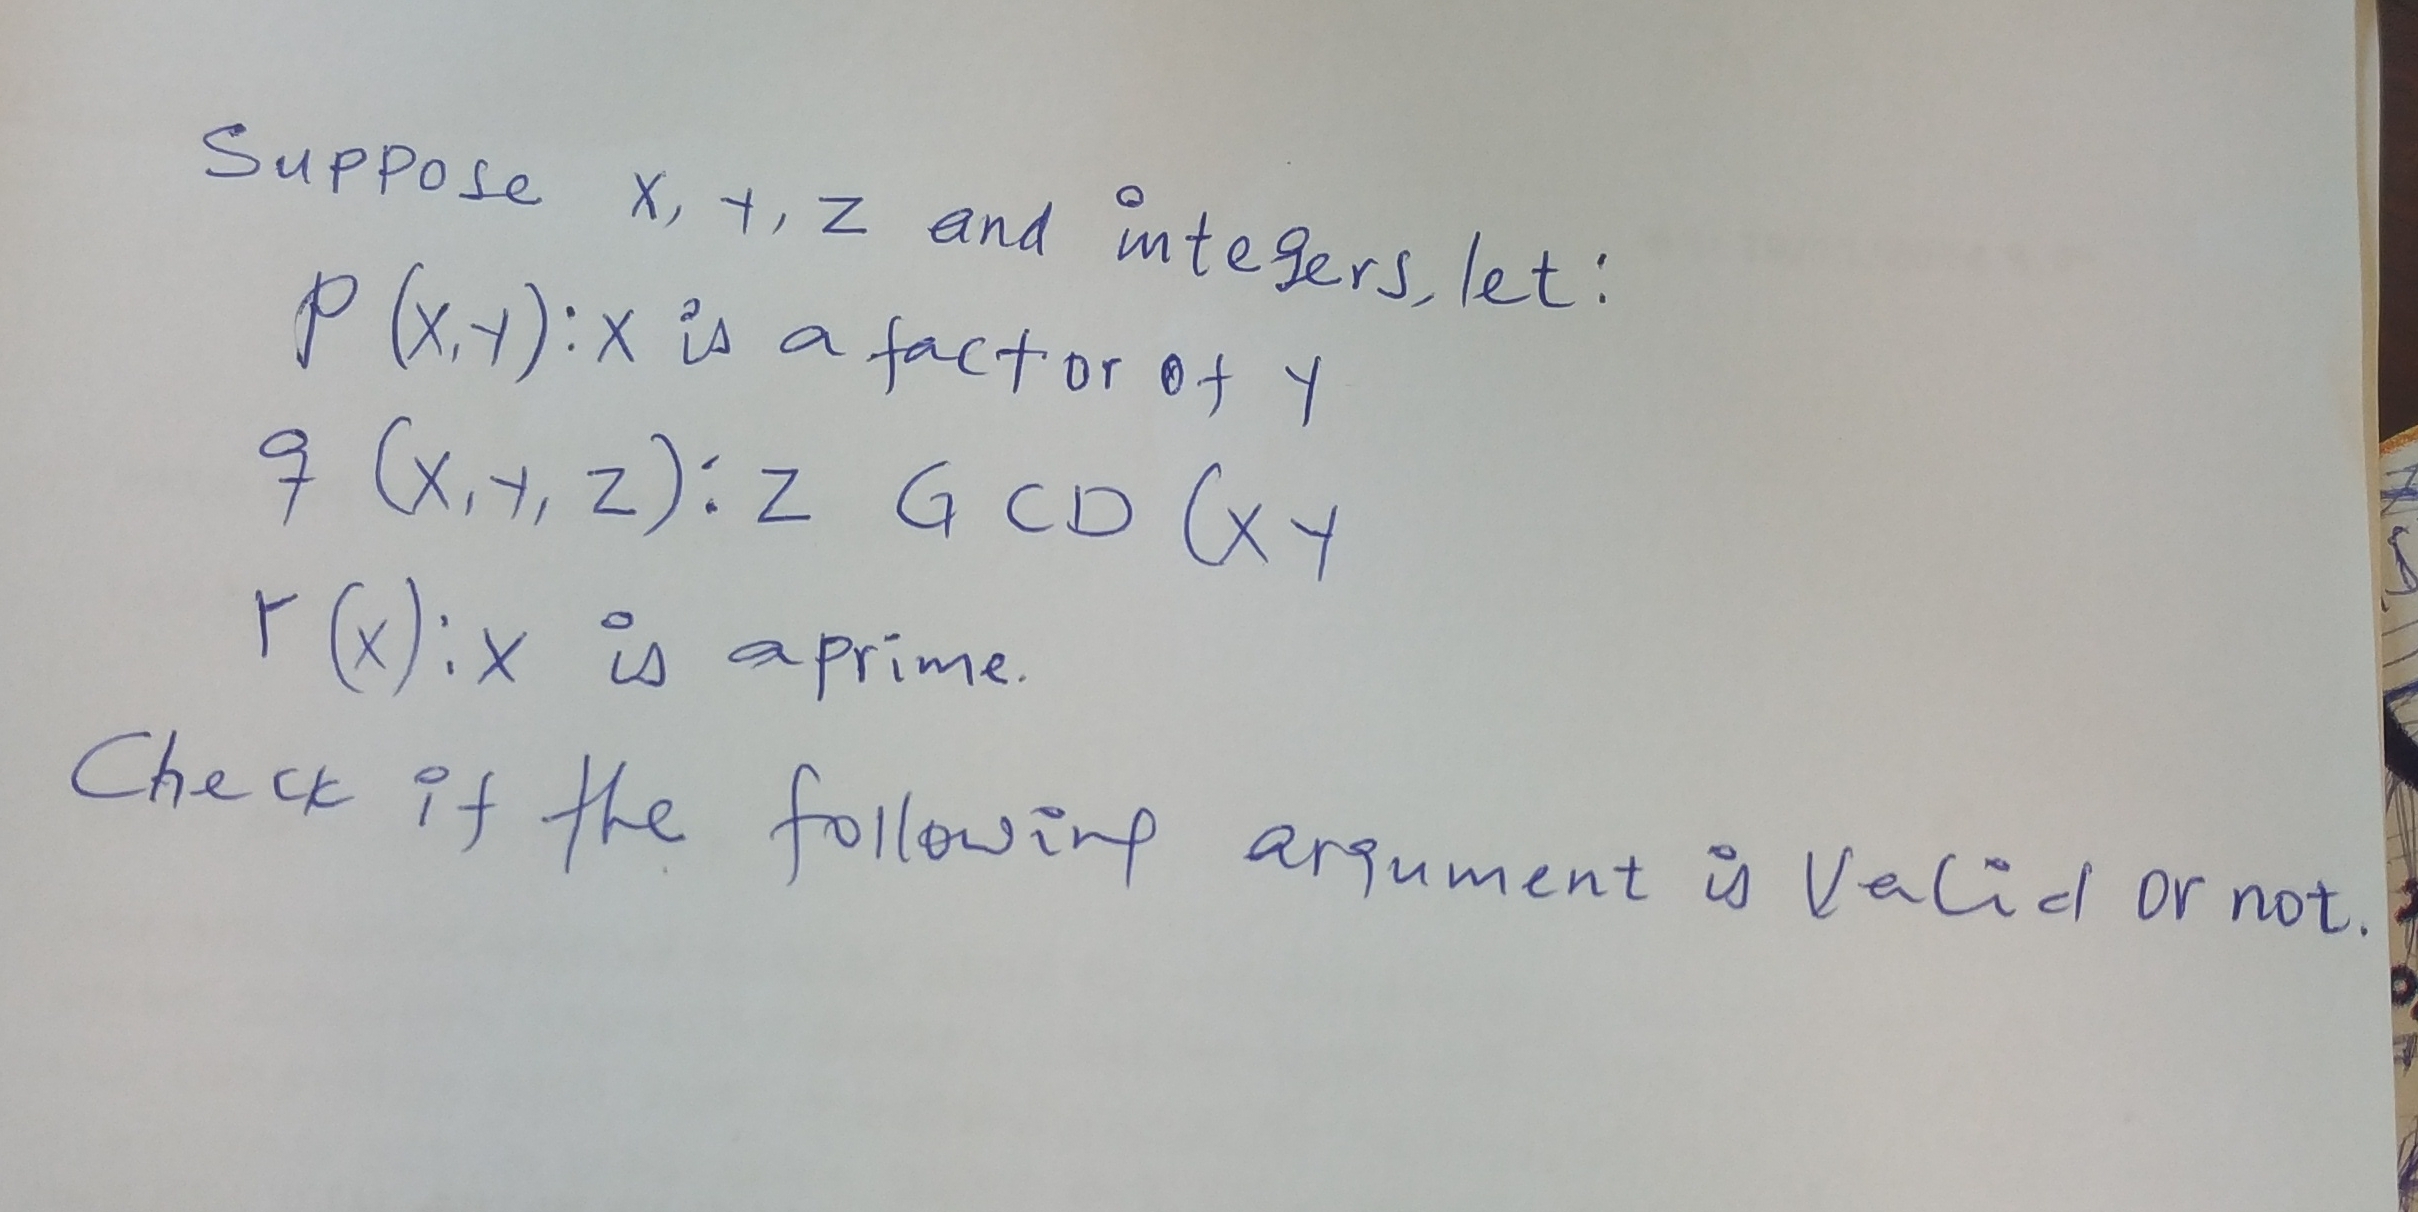 Suppose x, y, z and integers, let:
P (x,y): x is a factor of y
q (x, y, z): z GCD (x y
r (x): x is a prime.
Check if the following argument is valid or not.